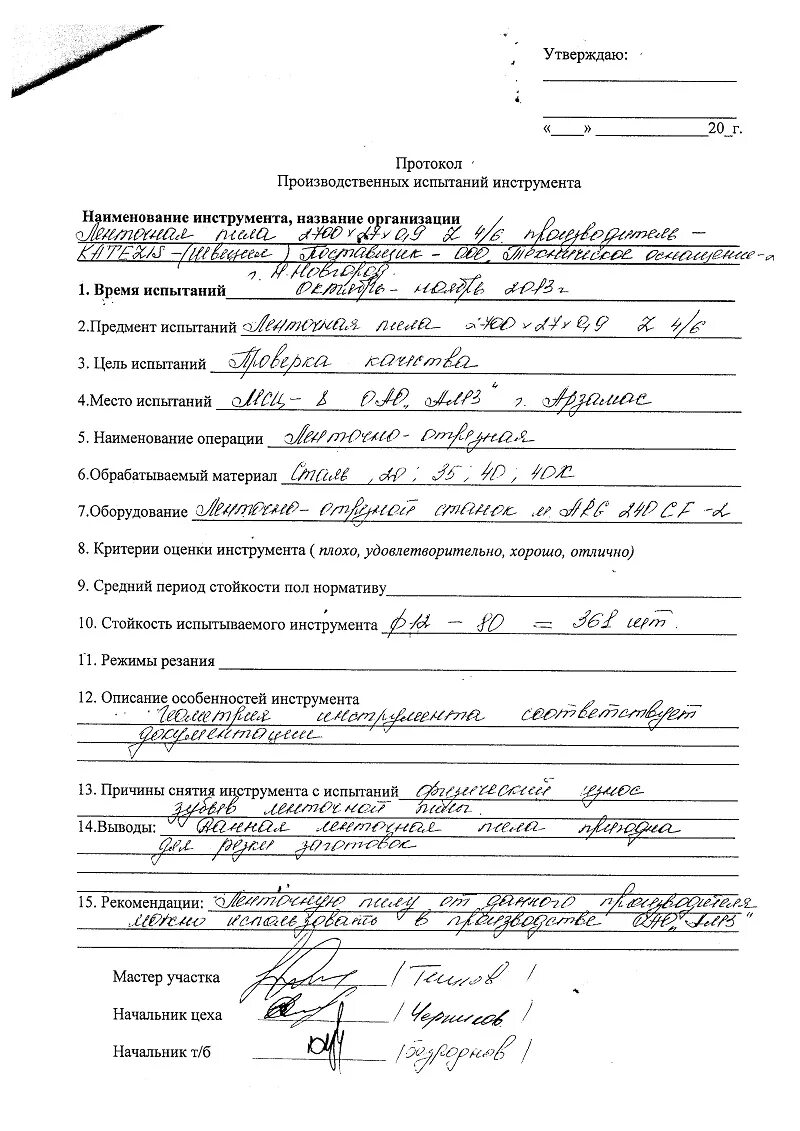 Утверждаю:
«____» ______________20_г.
Протокол
Производственных испытаний инструмента
Наименование инструмента, название организации
Ленточная пила 2700×27×0,9 Z 4/6 производитель –
KATEZIS – (Швеция) Поставщик – ООО „Техническое оснащение"
г. Н. Новгород.
1. Время испытаний Октябрь – ноябрь 2013 г
2.Предмент испытаний Ленточная пила 2700×27×0,9 Z 4/6
3. Цель испытаний Проверка качества
4.Место испытаний МСЦ – 8 ОАО „АМРЗ" г. Арзамас
5. Наименование операции Ленточно-отрезная
6.Обрабатываемый материал Сталь , 20 ; 35 ; 40 ; 40Х
7.Оборудование Ленточно-отрезной станок м ARG 240 CF -2
8. Критерии оценки инструмента ( плохо, удовлетворительно, хорошо, отлично)
9. Средний период стойкости пол нормативу
10. Стойкость испытываемого инструмента ф12 – 80 = 368 шт.
11. Режимы резания
12. Описание особенностей инструмента
Геометрия инструмента соответствует
документации
13. Причины снятия инструмента с испытаний физический износ
зубьев ленточной пилы.
14.Выводы: Данная ленточная пила пригодна
для резки заготовок
15. Рекомендации: Ленточную пилу от данного производителя
можно использовать в производстве ОАО „АМРЗ"
Мастер участка / /
Начальник цеха / /
Начальник т/б /Безроднов/